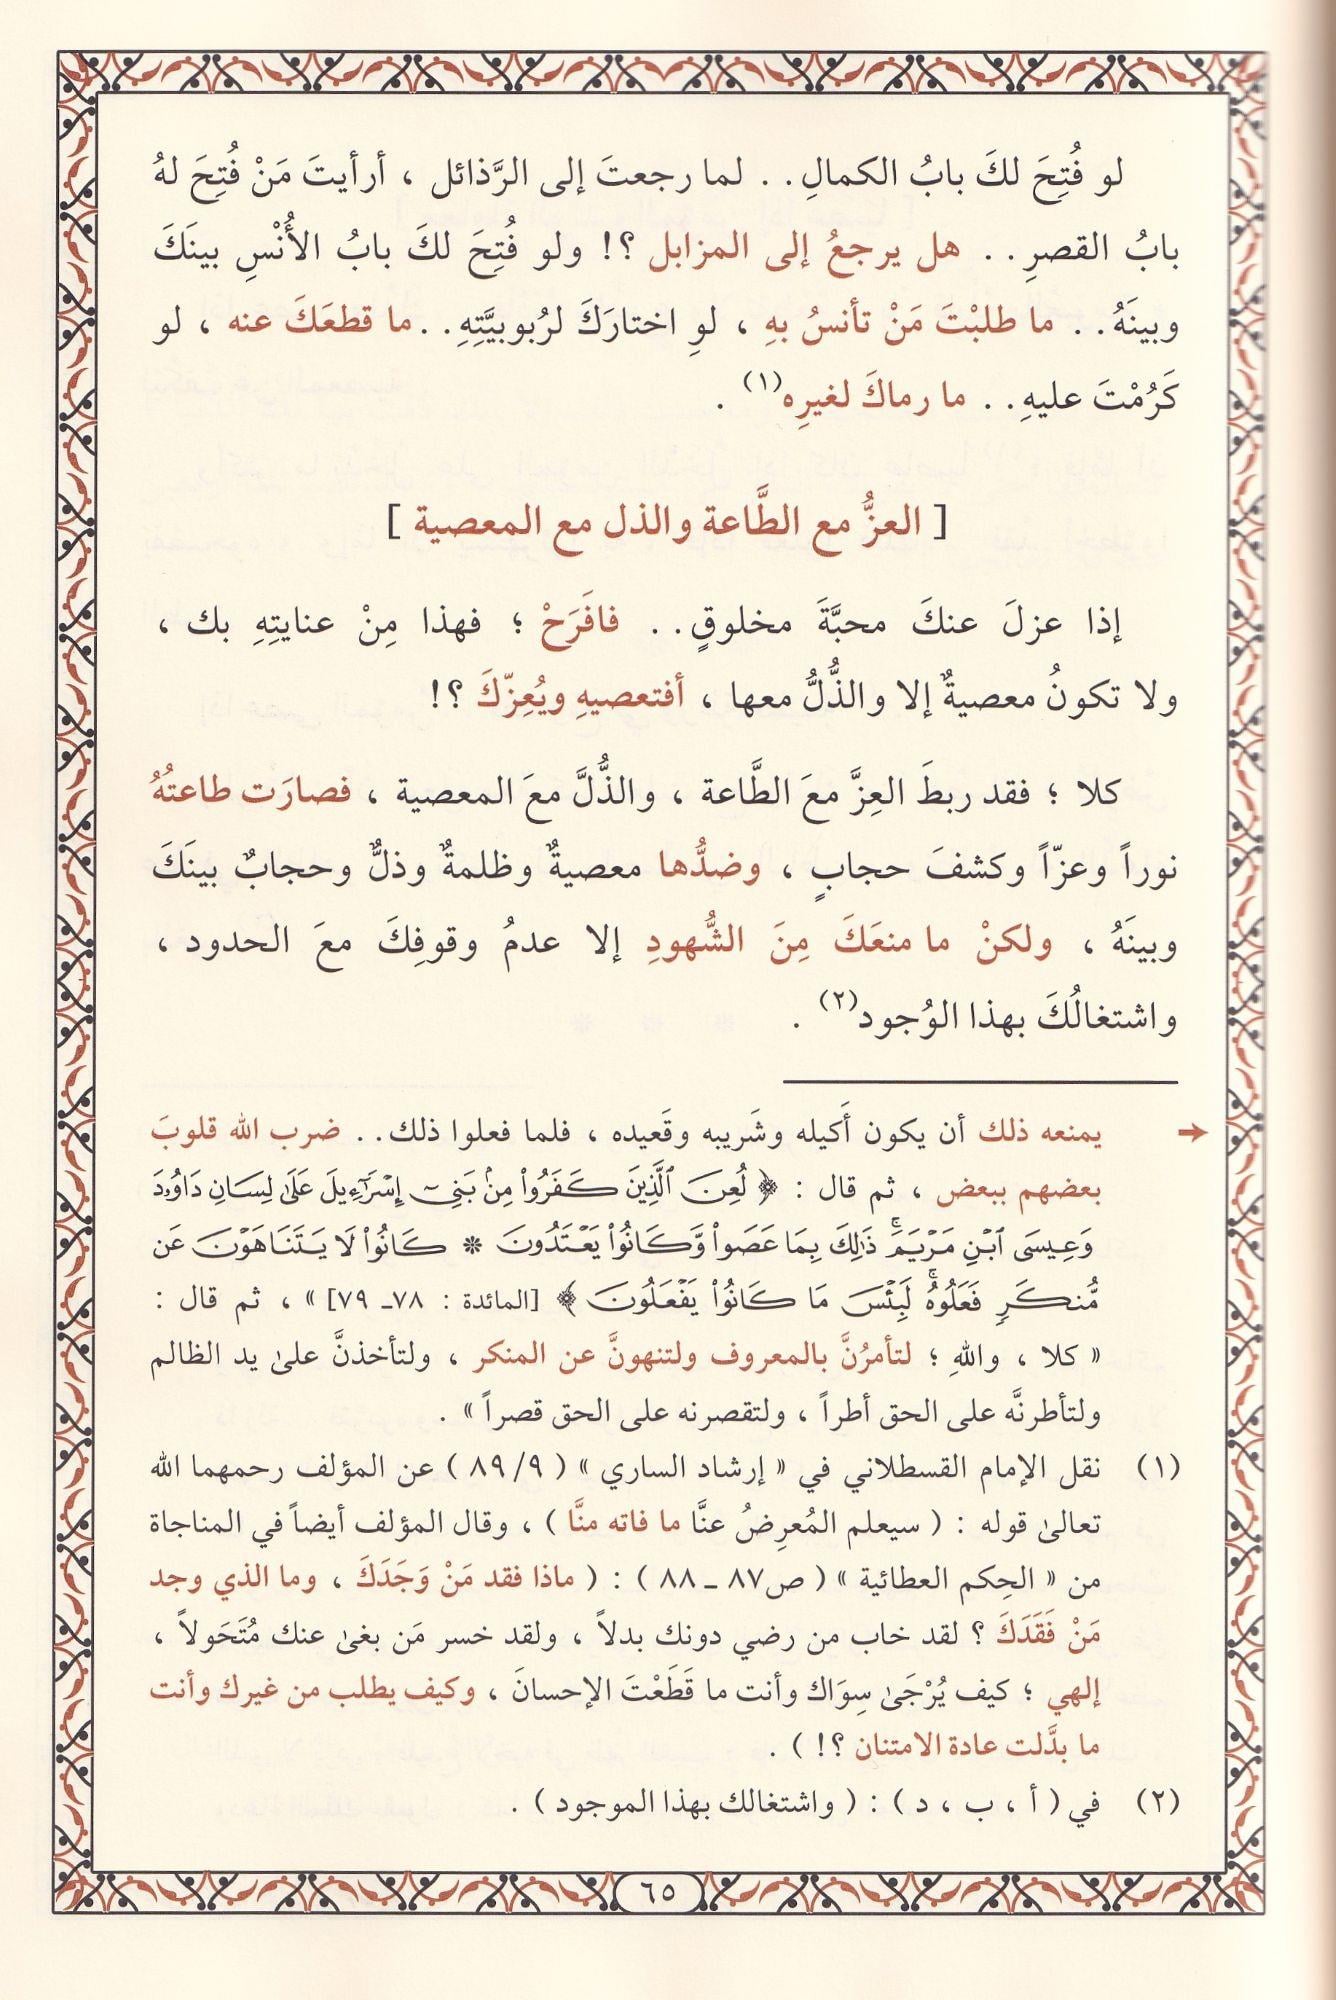 لو فُتِحَ لكَ بابُ الكمالِ . . لما رجعتَ إلى الرَّذائل ، أرأيتَ مَنْ فُتِحَ لهُ
بابُ القصرِ . . هل يرجعُ إلى المزابل ؟! ولو فُتِحَ لكَ بابُ الأُنْسِ بينَكَ
وبينَهُ . . ما طلبْتَ مَنْ تأنسُ بهِ ، لوِ اختارَكَ لرُبوبيَّتِهِ . . ما قطعَكَ عنه ، لو
كَرُمْتَ عليهِ . . ما رماكَ لغيرِه(١) .
[ العزُّ مع الطَّاعة والذل مع المعصية ]
إذا عزلَ عنكَ محبَّةَ مخلوقٍ . . فافَرَحْ ؛ فهذا مِنْ عنايتِهِ بك ،
ولا تكونُ معصيةٌ إلا والذُّلُّ معها ، أفتعصيهِ ويُعِزّكَ ؟!
كلا ؛ فقد ربطَ العِزَّ معَ الطَّاعة ، والذُّلَّ معَ المعصية ، فصارَت طاعتُهُ
نوراً وعزّاً وكشفَ حجابٍ ، وضدُّها معصيةٌ وظلمةٌ وذلٌّ وحجابٌ بينَكَ
وبينَهُ ، ولكنْ ما منعَكَ مِنَ الشُّهودِ إلا عدمُ وقوفِكَ معَ الحدود ،
واشتغالُكَ بهذا الوُجود(٢) .
يمنعه ذلك أن يكون أَكيله وشَريبه وقَعيده ، فلما فعلوا ذلك . . ضرب الله قلوبَ
بعضهم ببعض ، ثم قال : ﴿ لُعِنَ ٱلَّذِينَ كَفَرُواْ مِنۢ بَنِىٓ إِسْرَٰٓءِيلَ عَلَىٰ لِسَانِ دَاوُۥدَ
وَعِيسَى ٱبْنِ مَرْيَمَ ۚ ذَٰلِكَ بِمَا عَصَواْ وَّكَانُواْ يَعْتَدُونَ * كَانُواْ لَا يَتَنَاهَوْنَ عَن
مُّنكَرٍ فَعَلُوهُ ۚ لَبِئْسَ مَا كَانُواْ يَفْعَلُونَ ﴾ [المائدة : ٧٨ـ ٧٩] » ، ثم قال :
« كلا ، واللهِ ؛ لتأمرُنَّ بالمعروف ولتنهونَّ عن المنكر ، ولتأخذنَّ علىٰ يد الظالم
ولتأطرنَّه على الحق أطراً ، ولتقصرنه على الحق قصراً » .
(١) نقل الإمام القسطلاني في « إرشاد الساري » ( ٨٩/٩ ) عن المؤلف رحمهما الله
تعالىٰ قوله : ( سيعلم المُعرِضُ عنَّا ما فاته منَّا ) ، وقال المؤلف أيضاً في المناجاة
من « الحِكم العطائية » ( ص٨٧ ـ ٨٨ ) : ( ماذا فقد مَنْ وَجَدَكَ ، وما الذي وجد
مَنْ فَقَدَكَ ؟ لقد خاب من رضي دونك بدلاً ، ولقد خسر مَن بغىٰ عنك مُتَحَولاً ،
إلهي ؛ كيف يُرْجَىٰ سِوَاك وأنت ما قَطَعْتَ الإحسانَ ، وكيف يطلب من غيرك وأنت
ما بدَّلت عادة الامتنان ؟! ) .
(٢) في ( أ ، ب ، د ) : ( واشتغالك بهذا الموجود ) .
٦٥